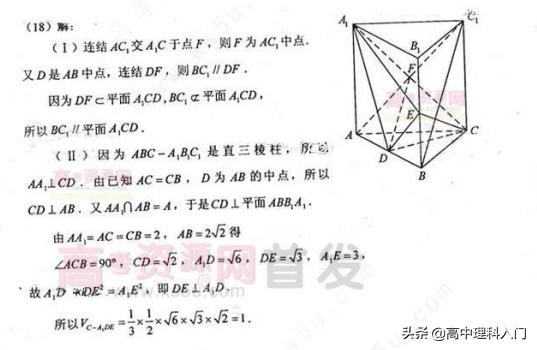 （18）解：
（Ⅰ）连结AC₁交A₁C于点F，则F为AC₁中点．
又D是AB中点，连结DF，则BC₁∥DF．
因为DF⊂平面A₁CD，BC₁⊄平面A₁CD，
所以BC₁∥平面A₁CD．
（Ⅱ）因为ABC－A₁B₁C₁是直三棱柱，所以
AA₁⊥CD．由已知AC=CB，D为AB的中点，所以
CD⊥AB．又AA₁∩AB=A，于是CD⊥平面ABB₁A₁．
由AA₁=AC=CB=2，AB=2√2得
∠ACB=90°，CD=√2，A₁D=√6，DE=√3，A₁E=3，
故A₁D²+DE²=A₁E²，即DE⊥A₁D．
所以V_{C-A₁DE}=1/3×1/2×√6×√3×√2=1．
A₁
C₁
B₁
F
E
A
C
D
B
高考资源网首发
头条 @高中理科入门